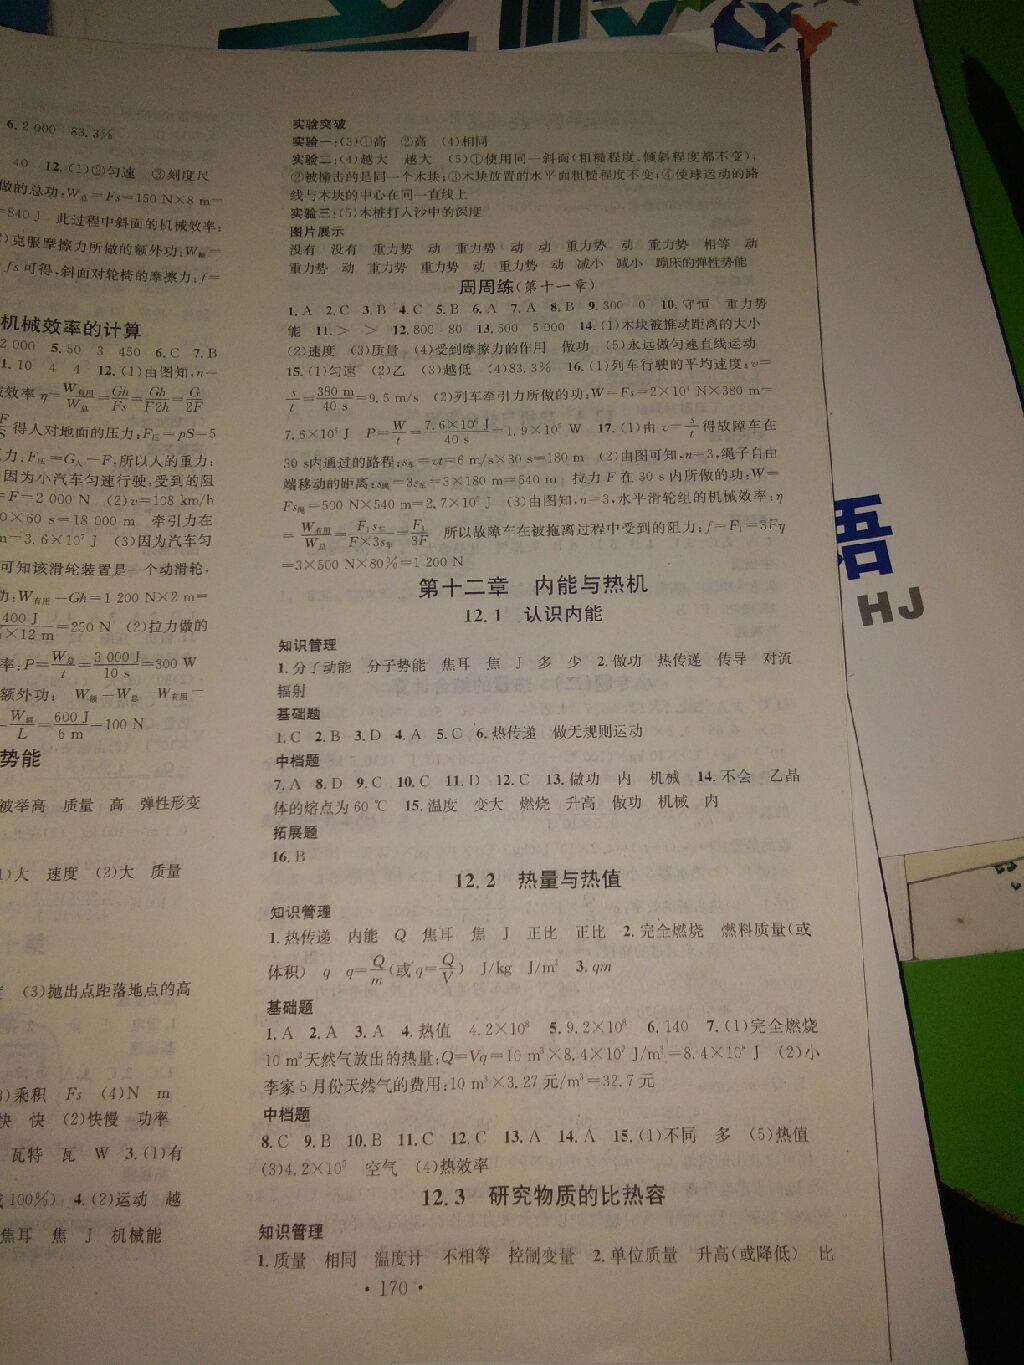 6. 2 000 83.3%
40 12. (1)②匀速 ③刻度尺
做的总功:W总=Fs=150 N×8 m=
=840 J 此过程中斜面的机械效率:
)克服摩擦力所做的额外功:W额=
fs可得,斜面对轮椅的摩擦力:f=
机械效率的计算
2 000 5. 50 3 450 6. C 7. B
1. 10 4 4 12. (1)由图知,n=
械效率 η=W有用/W总=Gh/Fs=Gh/F2h=G/2F
得人对地面的压力:F压=pS=5
力:F压=G人-F,所以人的重力:
因为小汽车匀速行驶,受到的阻
=F=2 000 N (2)v=108 km/h
0×60 s=18 000 m 牵引力在
m=3.6×10⁷ J (3)因为汽车匀
可知该滑轮装置是一个动滑轮,
功:W有用=Gh=1 200 N×2 m=
400 J/×12 m=250 N (2)拉力做的
率:P=W总/t=3 000 J/10 s=300 W
额外功: W额=W总-W有用=
W额/L=600 J/6 m=100 N
势能
被举高 质量 高 弹性形变
1)大 速度 (2)大 质量
度 (3)抛出点距落地点的高
3)乘积 Fs (4)N m
快 快 (2)快慢 功率
瓦特 瓦 W 3. (1)有
或100%) 4. (2)运动 越
焦耳 焦 J 机械能
实验突破
实验一:(3)①高 ②高 (4)相同
实验二:(4)越大 越大 (5)①使用同一斜面(粗糙程度、倾斜程度都不变);
②被撞击的是同一个木块;③木块放置的水平面粗糙程度不变;④使球运动的路
线与木块的中心在同一直线上
实验三:(5)木桩打入沙中的深度
图片展示
没有 没有 重力势 动 重力势 动 动 重力势 动 重力势 相等 动
重力势 动 重力势 重力势 动 重力势 动 减小 减小 蹦床的弹性势能
周周练(第十一章)
1. A 2. C 3. B 4. C 5. B 6. A 7. A 8. B 9. 300 0 10. 守恒 重力势
能 11. > > 12. 800 80 13. 500 5 000 14. (1)木块被推动距离的大小
(2)速度 (3)质量 (4)受到摩擦力的作用 做功 (5)永远做匀速直线运动
15. (1)匀速 (2)乙 (3)越低 (4)83.3% 16. (1)列车行驶的平均速度:v=
s/t=380 m/40 s=9.5 m/s (2)列车牵引力所做的功:W=Fs=2×10⁴ N×380 m=
7.6×10⁶ J P=W/t=7.6×10⁶ J/40 s=1.9×10⁵ W 17. (1)由 v=s/t得故障车在
30 s内通过的路程:s车=vt=6 m/s×30 s=180 m (2)由图可知,n=3,绳子自由
端移动的距离:s绳=3s车=3×180 m=540 m 拉力 F 在 30 s 内所做的功:W=
Fs绳=500 N×540 m=2.7×10⁵ J (3)由图知,n=3,水平滑轮组的机械效率:η
=W有用/W总=F₁s车/F×3s车=F₁/3F 所以故障车在被拖离过程中受到的阻力:f=F₁=3Fη
=3×500 N×80%=1 200 N
第十二章 内能与热机
12.1 认识内能
知识管理
1. 分子动能 分子势能 焦耳 焦 J 多 少 2. 做功 热传递 传导 对流
辐射
基础题
1. C 2. B 3. D 4. A 5. C 6. 热传递 做无规则运动
中档题
7. A 8. D 9. C 10. C 11. D 12. C 13. 做功 内 机械 14. 不会 乙晶
体的熔点为 60 ℃ 15. 温度 变大 燃烧 升高 做功 机械 内
拓展题
16. B
12.2 热量与热值
知识管理
1. 热传递 内能 Q 焦耳 焦 J 正比 正比 2. 完全燃烧 燃料质量(或
体积) q q=Q/m(或q=Q/V) J/kg J/m³ 3. qm
基础题
1. A 2. A 3. A 4. 热值 4.2×10⁸ 5. 9.2×10⁸ 6. 140 7. (1)完全燃烧
10 m³天然气放出的热量:Q=Vq=10 m³×8.4×10⁷ J/m³=8.4×10⁸ J (2)小
李家 5 月份天然气的费用:10 m³×3.27 元/m³=32.7 元
中档题
8. C 9. B 10. B 11. C 12. C 13. A 14. A 15. (1)不同 多 (5)热值
(3)4.2×10⁵ 空气 (4)热效率
12.3 研究物质的比热容
知识管理
1. 质量 相同 温度计 不相等 控制变量 2. 单位质量 升高(或降低) 比
· 170 ·
语
HJ